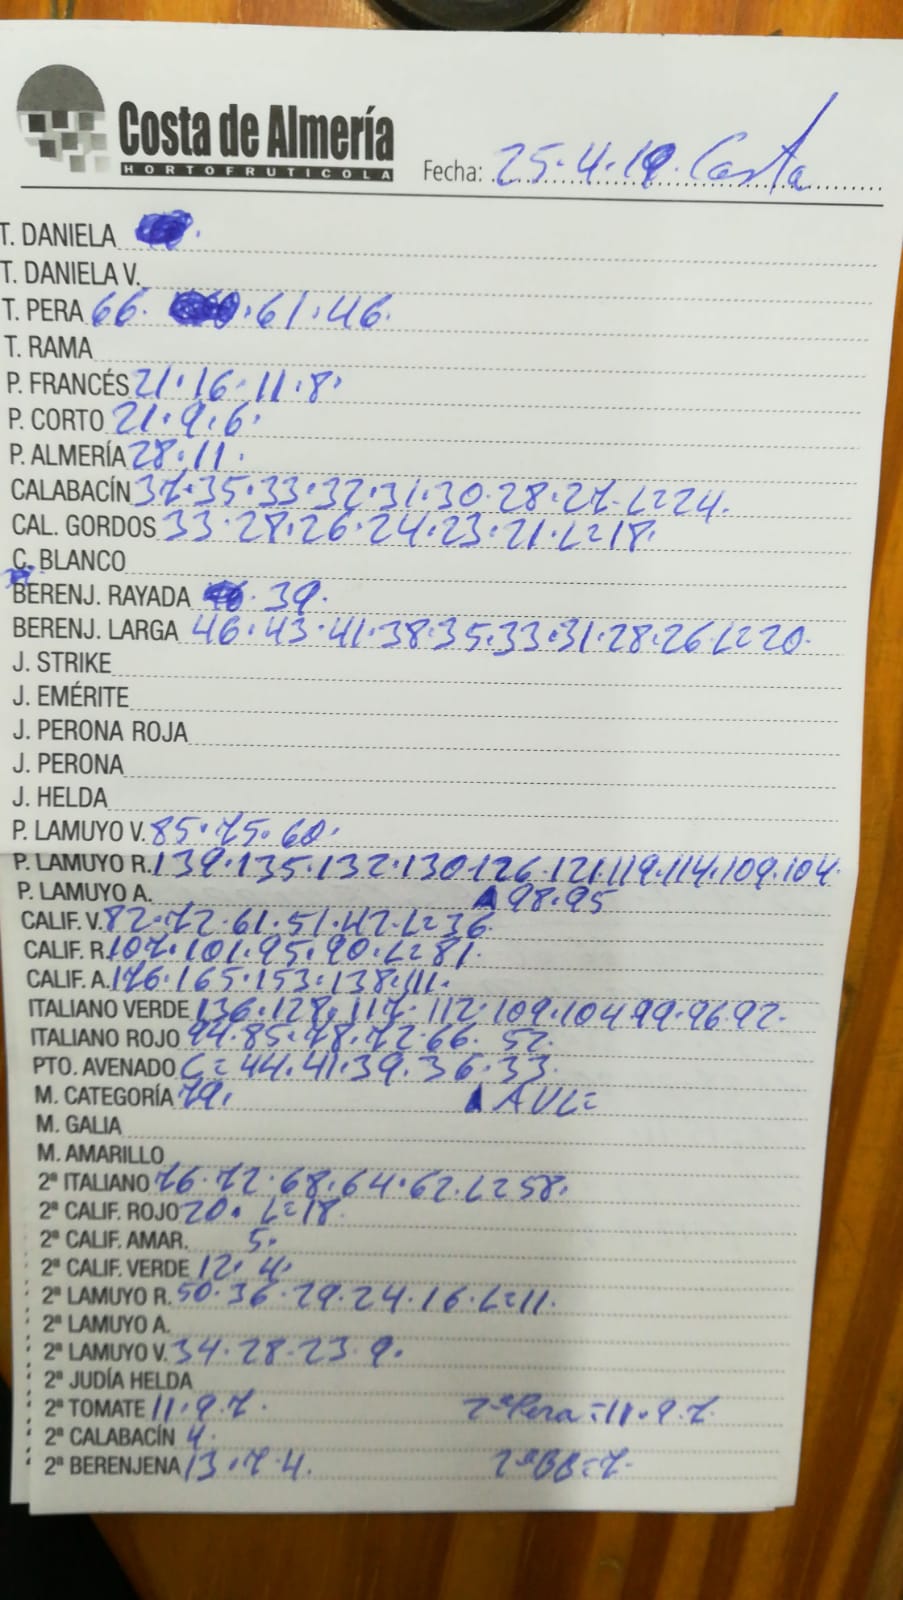 Costa de Almería
HORTOFRUTICOLA
Fecha: 25.4.19. Costa
T. DANIELA
T. DANIELA V.
T. PERA 66. . 61. 46.
T. RAMA
P. FRANCÉS 21. 16. 11. 8.
P. CORTO 21. 9. 6.
P. ALMERÍA 28. 11.
CALABACÍN 37. 35. 33. 32. 31. 30. 28. 27. L=24.
CAL. GORDOS 33. 28. 26. 24. 23. 21. L=18.
C. BLANCO
BERENJ. RAYADA . 39.
BERENJ. LARGA 46. 43. 41. 38. 35. 33. 31. 28. 26. L=20.
J. STRIKE
J. EMÉRITE
J. PERONA ROJA
J. PERONA
J. HELDA
P. LAMUYO V. 85. 75. 60.
P. LAMUYO R. 139. 135. 132. 130. 126. 121. 119. 114. 109. 104.
P. LAMUYO A. 98. 95
CALIF. V. 82. 72. 61. 51. 47. L=36.
CALIF. R. 107. 101. 95. 90. L=81.
CALIF. A. 176. 165. 153. 138. 111.
ITALIANO VERDE 136. 128. 117. 112. 109. 104 99. 96. 92.
ITALIANO ROJO 94. 85. 78. 72. 66. 52.
PTO. AVENADO C=44. 41. 39. 36. 33.
M. CATEGORÍA 79. AVL=
M. GALIA
M. AMARILLO
2ª ITALIANO 76. 72. 68. 64. 62. L=58.
2ª CALIF. ROJO 20. L=18.
2ª CALIF. AMAR. 5.
2ª CALIF. VERDE 12. 4.
2ª LAMUYO R. 50. 36. 29. 24. 16. L=11.
2ª LAMUYO A.
2ª LAMUYO V. 34. 28. 23. 9.
2ª JUDÍA HELDA
2ª TOMATE 11. 9. 7. 2ª Pera=11. 9. 7.
2ª CALABACÍN 4.
2ª BERENJENA 13. 7. 4. 2ª BB=7.